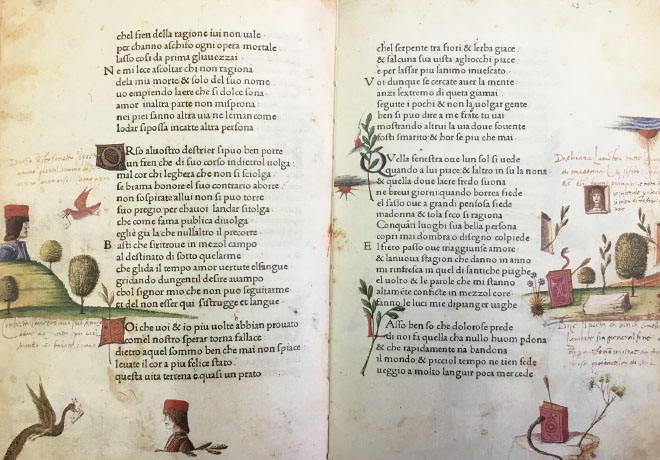 chel fren della ragione iui non uale
per channo aschifo ogni opera mortale
lasso cosi da prima gliauezzai
Ne mi lece ascoltar chi non ragiona
dela mia morte & solo del suo nome
uo empiendo laere che si dolce sona
amor inaltra parte non misprona
nei piei sanno altra uia ne leman come
lodar sipossa incarte altra persona
ORso aluostro destrier sipuo ben porre
un fren che di suo corso indietro uolga
mal cor chi leghera che non si sciolga
se brama honore el suo contrario aborre
non sospirate allui non si puo torre
suo pregio per chauoi landar sitolga
che come fama publica diuolga
egli e gia la che nullaltro il precorre
Basti che siritroue in mezol campo
al destinato di sotto quelarme
che glida il tempo amor uertute elsangue
gridando dungentil desire auampo
chol signor mio che non puo seguitarme
et del non esser qui sistrugge et langue
POi che uoi & io piu uolte abbian prouato
come l nostro sperar torna fallace
dietro aquel sommo ben che mai non spiace
leuate il cor a piu felice stato
questa uita terrena e quasi un prato
chel serpente tra fiori & lerba giace
& salcuna sua uista agliocchi piace
e per lassar piu lanimo inuescato
Voi dunque se cercate auer la mente
anzi lextremo di queta giamai
seguite i pochi & non la uolgar gente
ben si puo dire a me frate tu uai
mostrando altrui la uia doue souente
fosti smarito & hor se piu che mai
QVella fenestra oue lun sol si uede
quando a lui piace & laltro in su la nona
& quella doue laere fredo suona
ne breui giorni quando borrea fiede
el sasso oue a grandi pensosa siede
madonna & sola seco si ragiona
Con quanti luoghi sua bella persona
copri mai dombra o disegno col piede
El fiero passo oue magiunse amore
& la nuoua stagion che danno in anno
mi rinfresca in quel di lantiche piaghe
el uolto & le parole che mi stanno
altamente confitte in mezzo l core
fanno le luci mie di pianger uaghe
LAsso ben so che dolorose prede
di noi fa quella cha nullo huom pdona
& che rapidamente na bandona
il mondo & picciol tempo ne tien fede
ueggio a molto languir poca mercede